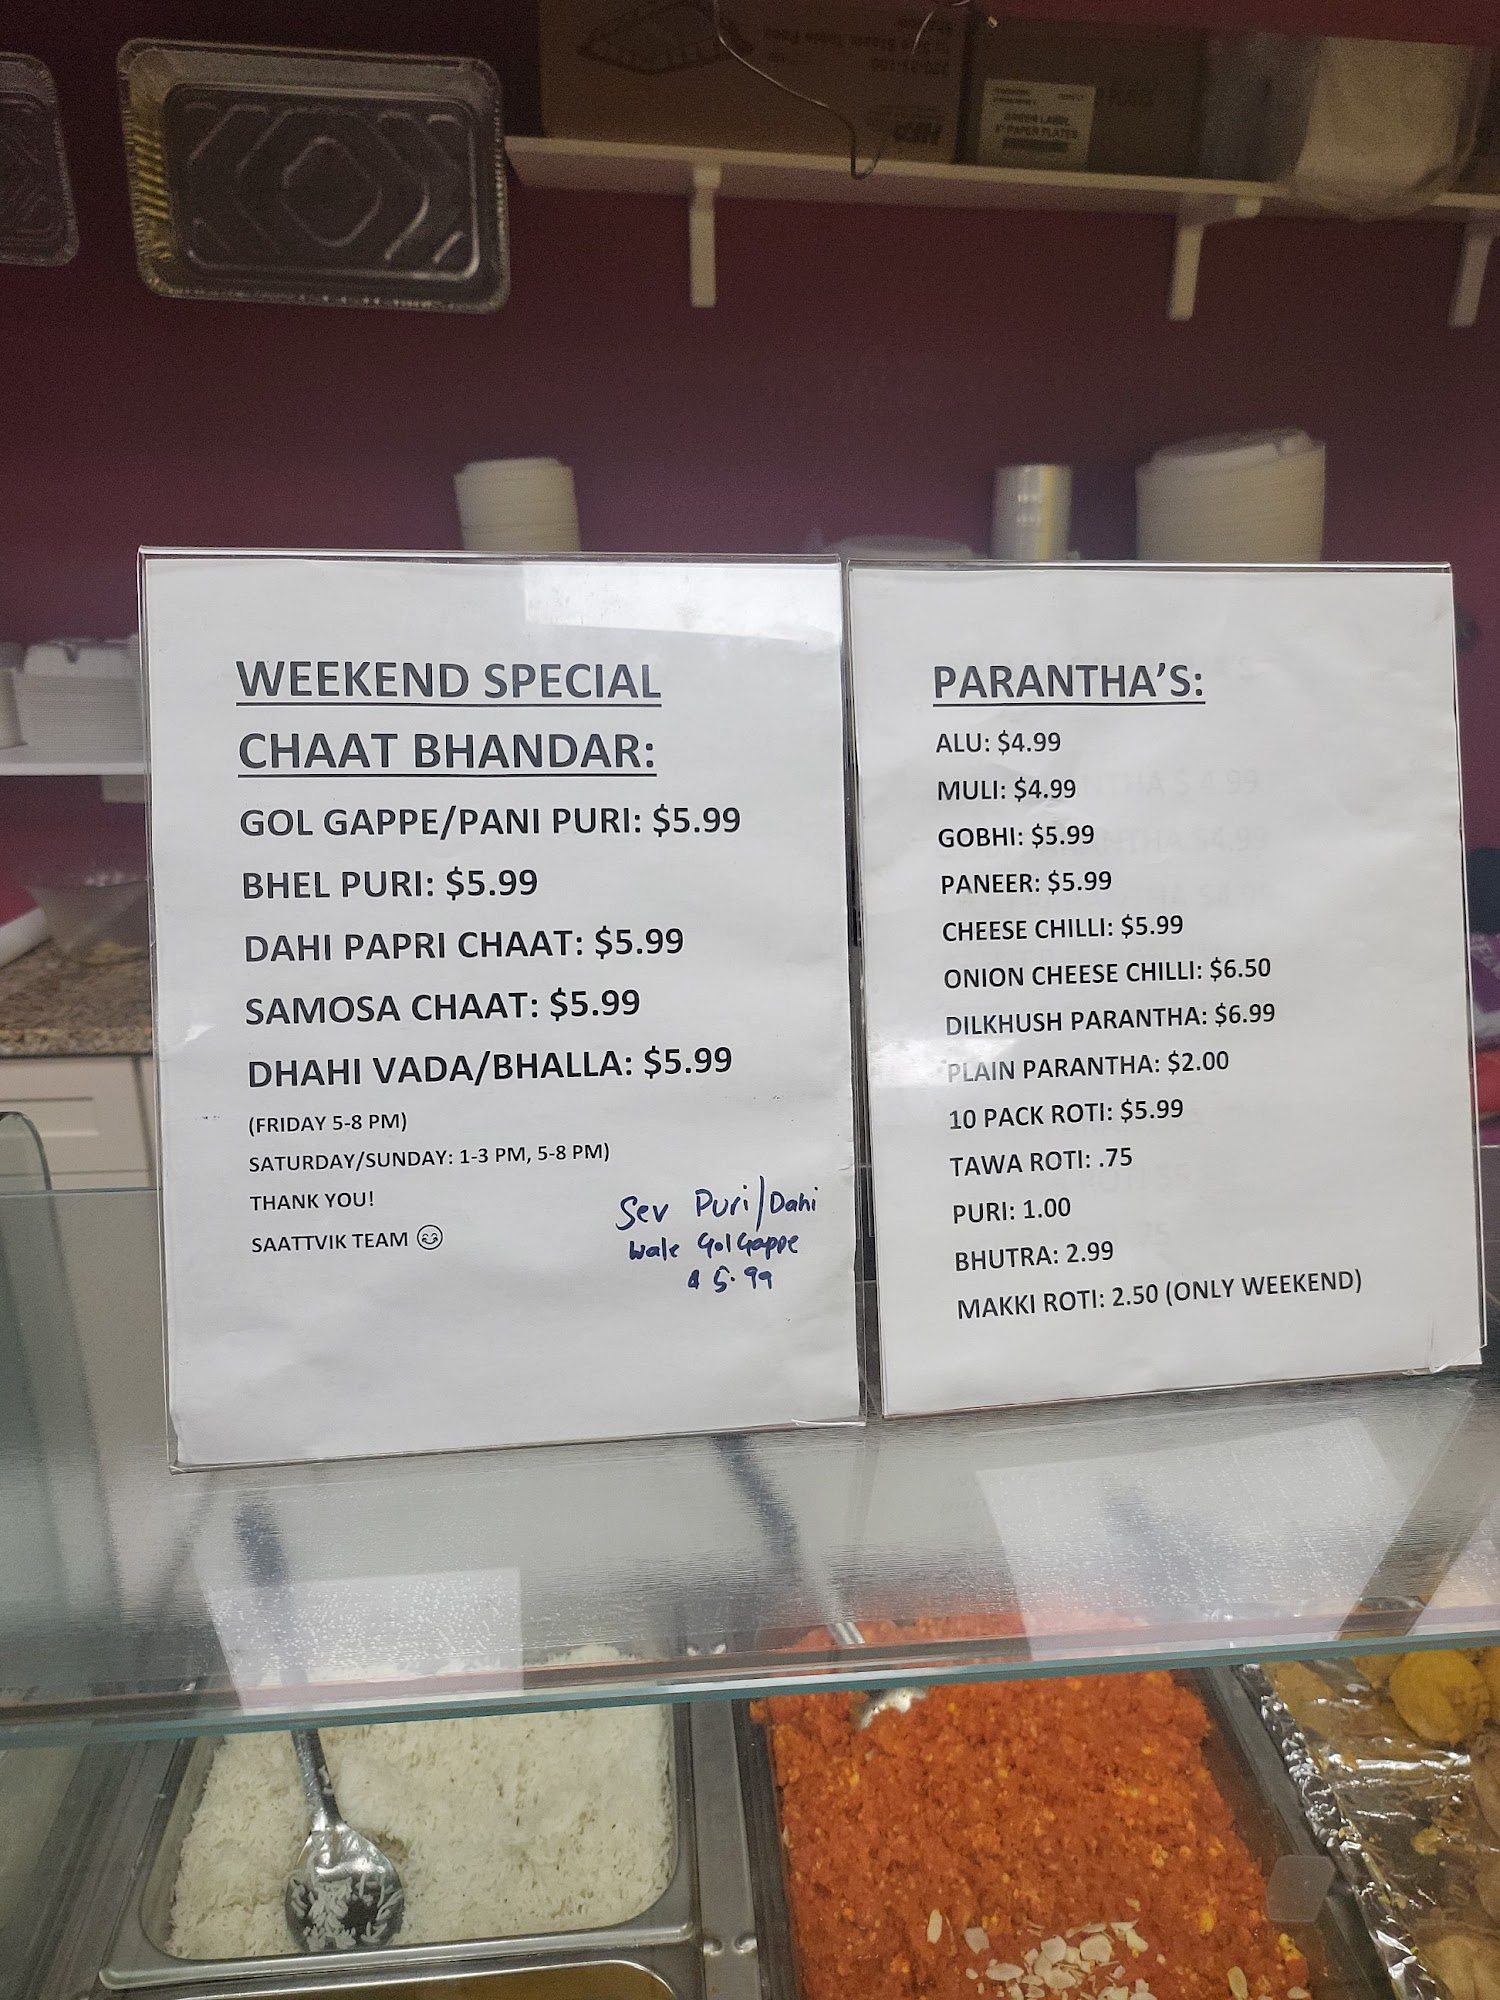 GREEN LABEL
9" PAPER PLATES
WEEKEND SPECIAL
CHAAT BHANDAR:
GOL GAPPE/PANI PURI: $5.99
BHEL PURI: $5.99
DAHI PAPRI CHAAT: $5.99
SAMOSA CHAAT: $5.99
DHAHI VADA/BHALLA: $5.99
(FRIDAY 5-8 PM)
SATURDAY/SUNDAY: 1-3 PM, 5-8 PM)
THANK YOU!
SAATTVIK TEAM 😊
Sev Puri/Dahi
wale Gol Gappe
$ 5.99
PARANTHA'S:
ALU: $4.99
MULI: $4.99
GOBHI: $5.99
PANEER: $5.99
CHEESE CHILLI: $5.99
ONION CHEESE CHILLI: $6.50
DILKHUSH PARANTHA: $6.99
PLAIN PARANTHA: $2.00
10 PACK ROTI: $5.99
TAWA ROTI: .75
PURI: 1.00
BHUTRA: 2.99
MAKKI ROTI: 2.50 (ONLY WEEKEND)